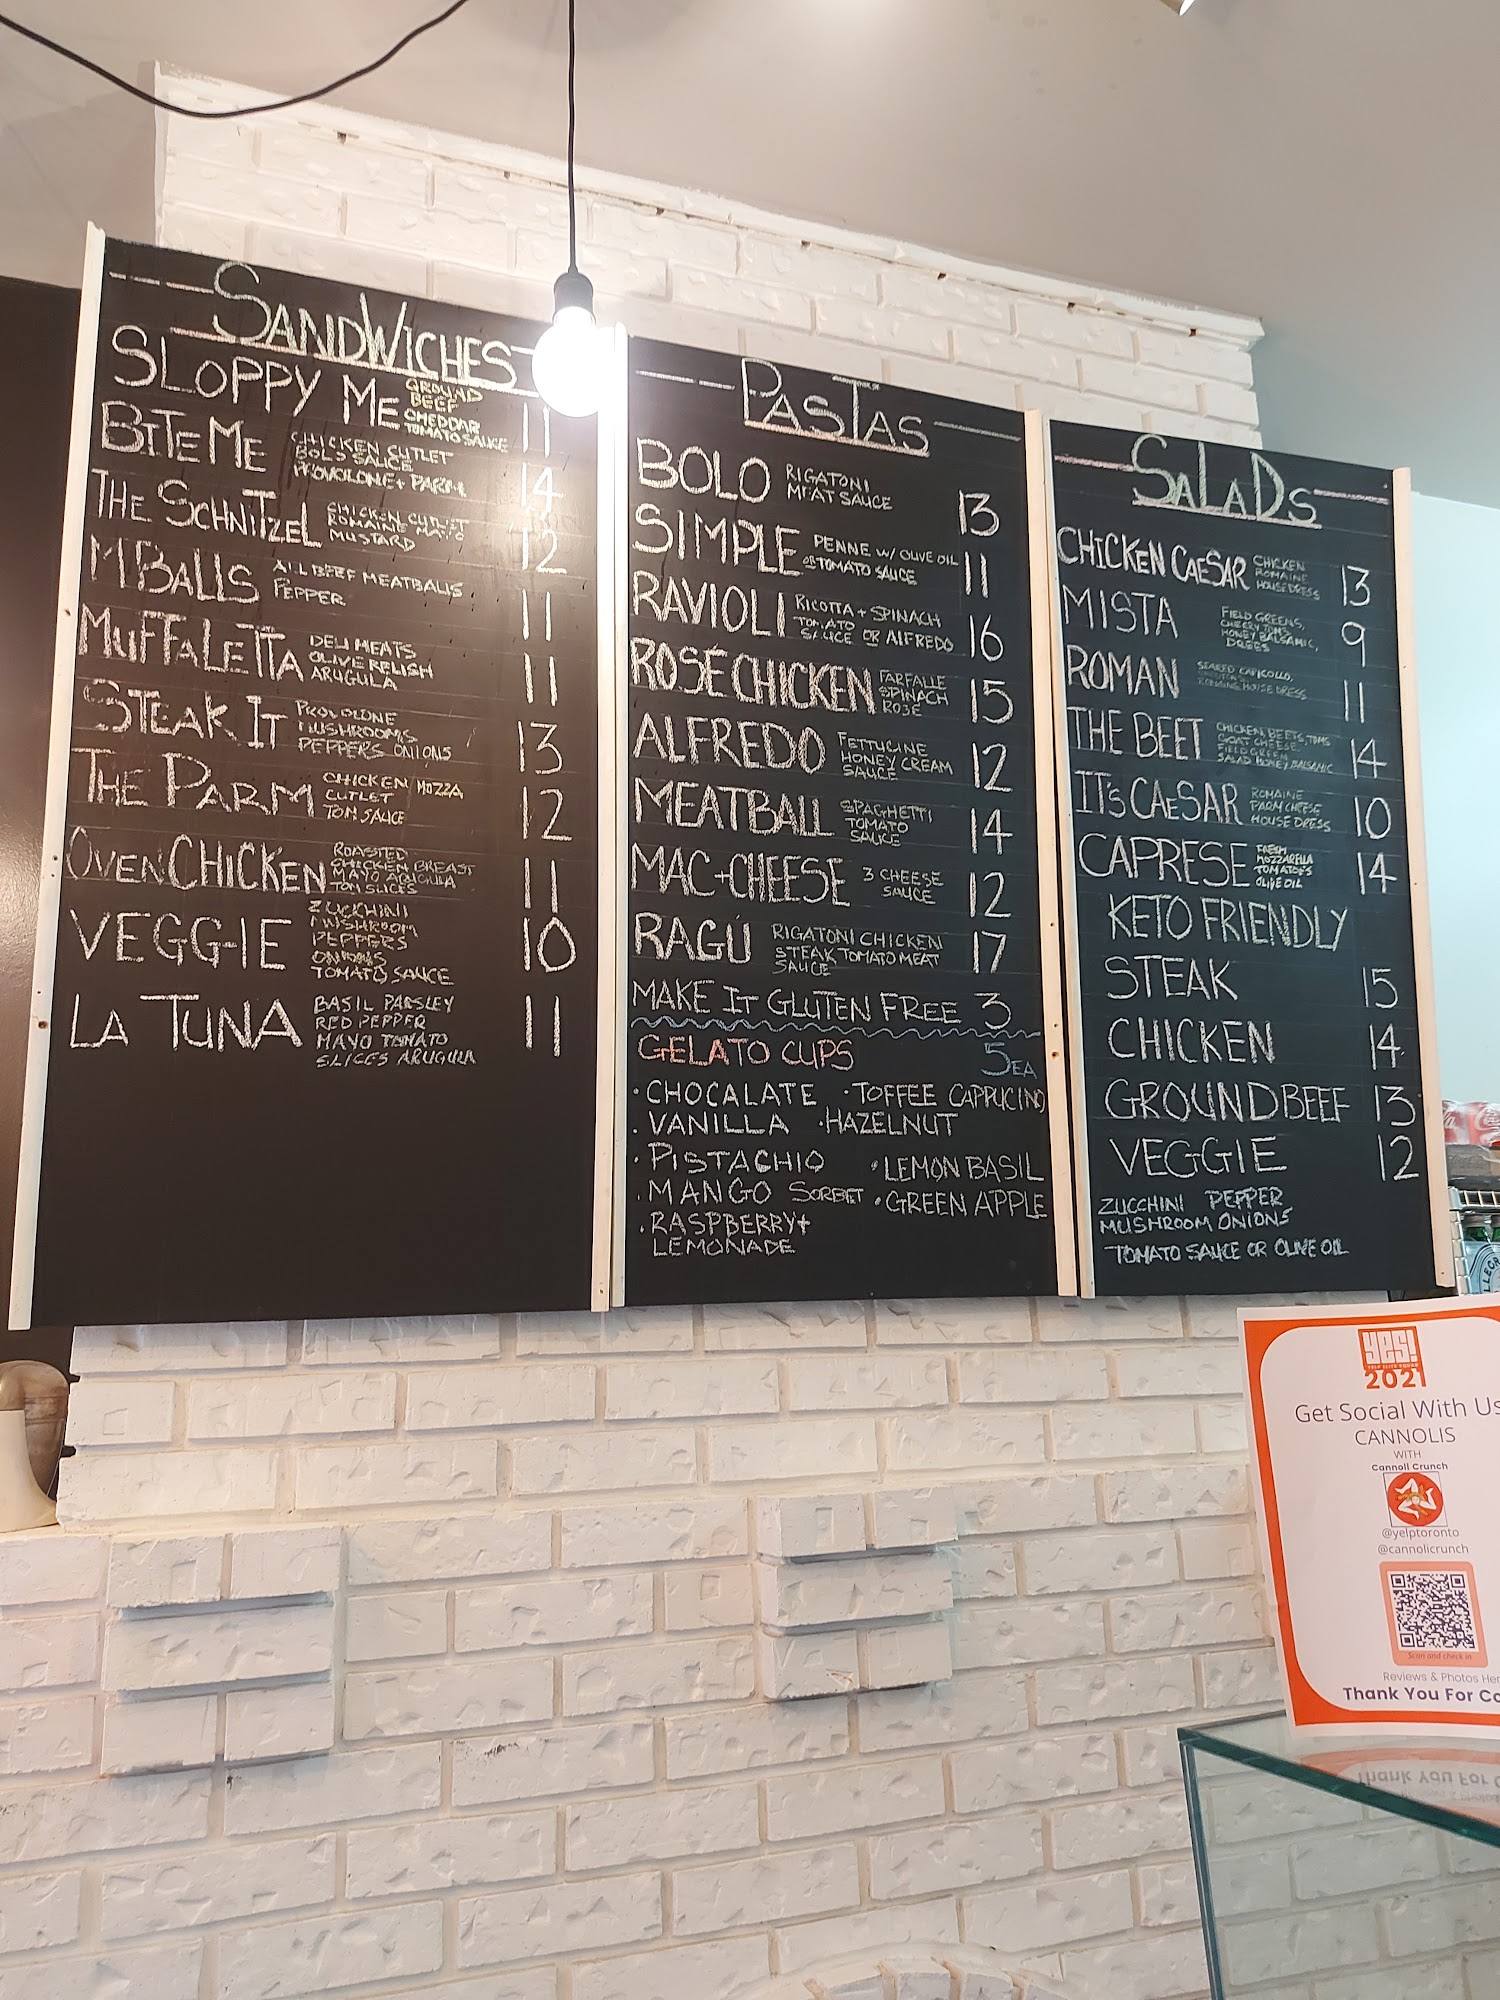 SANDWICHES
SLOPPY ME GROUND BEEF CHEDDAR TOMATO SAUCE 11
BITE ME CHICKEN CUTLET BOLO SAUCE PROVOLONE + PARM 14
THE SCHNITZEL CHICKEN CUTLET ROMAINE MAYO MUSTARD 12
MBALLS ALL BEEF MEATBALLS PEPPER 11
MUFFALETTA DELI MEATS OLIVE RELISH ARUGULA 11
STEAK IT PROVOLONE MUSHROOMS PEPPERS ONIONS 13
THE PARM CHICKEN MOZZA CUTLET TOM SAUCE 12
OVEN CHICKEN ROASTED CHICKEN BREAST MAYO ARUGULA TOM SLICES 11
VEGGIE ZUCKHINI MUSHROOM PEPPERS ONIONS TOMATO SAUCE 10
LA TUNA BASIL PARSLEY RED PEPPER MAYO TOMATO SLICES ARUGULA 11
PASTAS
BOLO RIGATONI MEAT SAUCE 13
SIMPLE PENNE W/ OLIVE OIL OR TOMATO SAUCE 11
RAVIOLI RICOTTA + SPINACH TOMATO SAUCE OR ALFREDO 16
ROSÉ CHICKEN FARFALLE SPINACH ROSE 15
ALFREDO FETTUCINE HONEY CREAM SAUCE 12
MEATBALL SPAGHETTI TOMATO SAUCE 14
MAC+CHEESE 3 CHEESE SAUCE 12
RAGÚ RIGATONI CHICKEN STEAK TOMATO MEAT SAUCE 17
MAKE IT GLUTEN FREE 3
GELATO CUPS 5EA
· CHOCALATE · TOFFEE CAPPUCINO
· VANILLA · HAZELNUT
· PISTACHIO · LEMON BASIL
· MANGO SORBET · GREEN APPLE
· RASPBERRY+
LEMONADE
SALADS
CHICKEN CAESAR CHICKEN ROMAINE HOUSE DRESS 13
MISTA FIELD GREENS, CHERRY TOMS, HONEY BALSAMIC, DREES 9
ROMAN SEARED CAPICOLLO, ROMAINE HOUSE DRESS 11
THE BEET CHICKEN, BEETS, TOMS GOAT CHEESE FIELD GREEN SALAD HONEY BALSAMIC 14
IT'S CAESAR ROMAINE PARM CHEESE HOUSE DRESS 10
CAPRESE FRESH MOZZARELLA TOMATOE'S OLIVE OIL 14
KETO FRIENDLY
STEAK 15
CHICKEN 14
GROUND BEEF 13
VEGGIE 12
ZUCCHINI PEPPER
MUSHROOM ONIONS
TOMATO SAUCE OR OLIVE OIL
YES!
YELP ELITE SQUAD
2021
Get Social With Us
CANNOLIS
WITH
Cannoli Crunch
@yelptoronto
@cannolicrunch
Scan and check in
Reviews & Photos Her
Thank You For Co